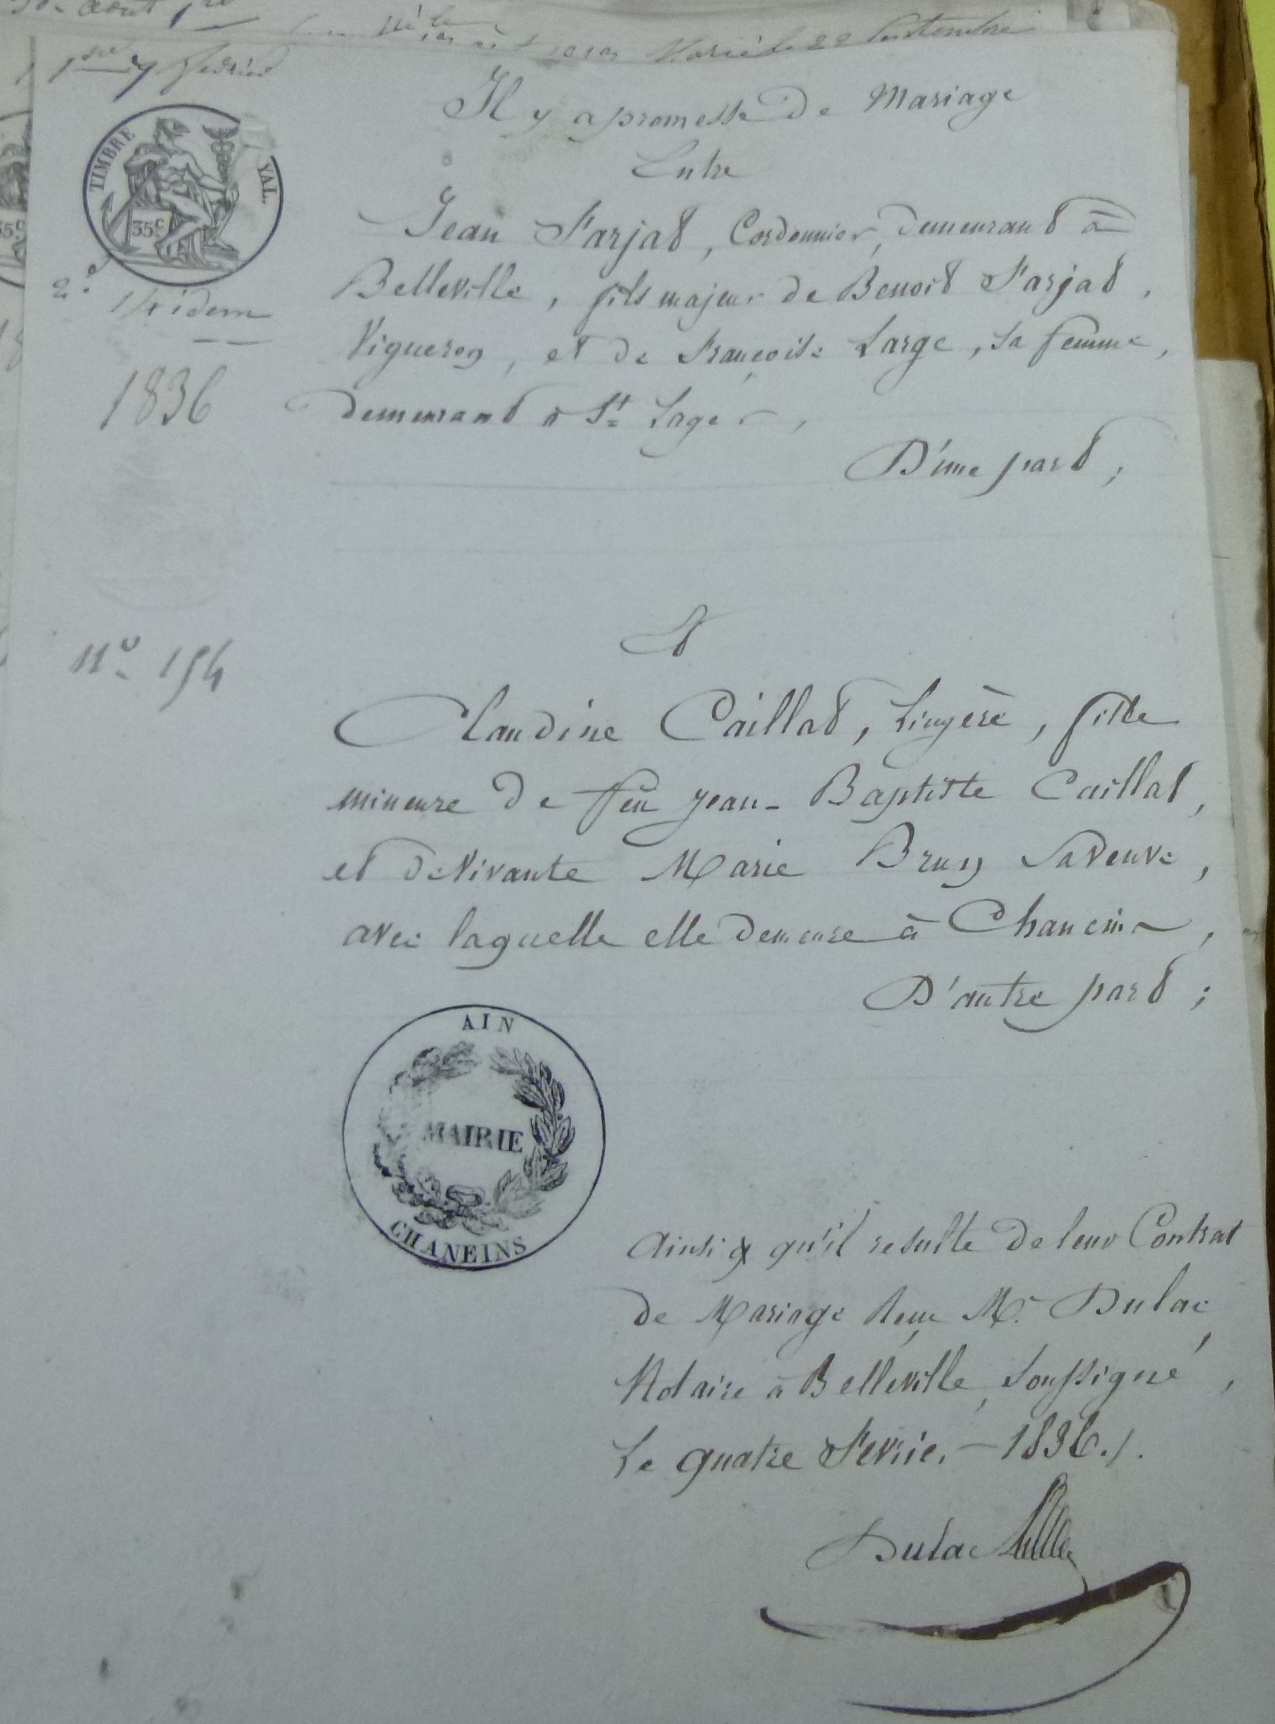 30. Août 1re
Marié le 22 Septembre
1re 7 février
Il y a promesse de Mariage
Entre
TIMBRE YAL.
35c
35c
Jean Farjat, Cordonnier, demeurant à
Belleville, fils majeur de Benoit Farjat,
2e 14 idem
Vigneron, et de Françoise Large, sa femme,
1836
demeurant à St. Lager,
D'une part ;
Et
No. 154
Claudine Caillat, Lingère, fille
mineure de feu Jean-Baptiste Caillat,
et de Vivante Marie Brun sa Veuve,
avec laquelle elle demeure à Chaneins,
D'autre part ;
AIN
MAIRIE
CHANEINS
Ainsi qu'il resulte de leur Contrat
de Mariage Reçu Me. Dulac,
Notaire à Belleville, Soussigné,
Le quatre Fevrier 1836./.
Dulac